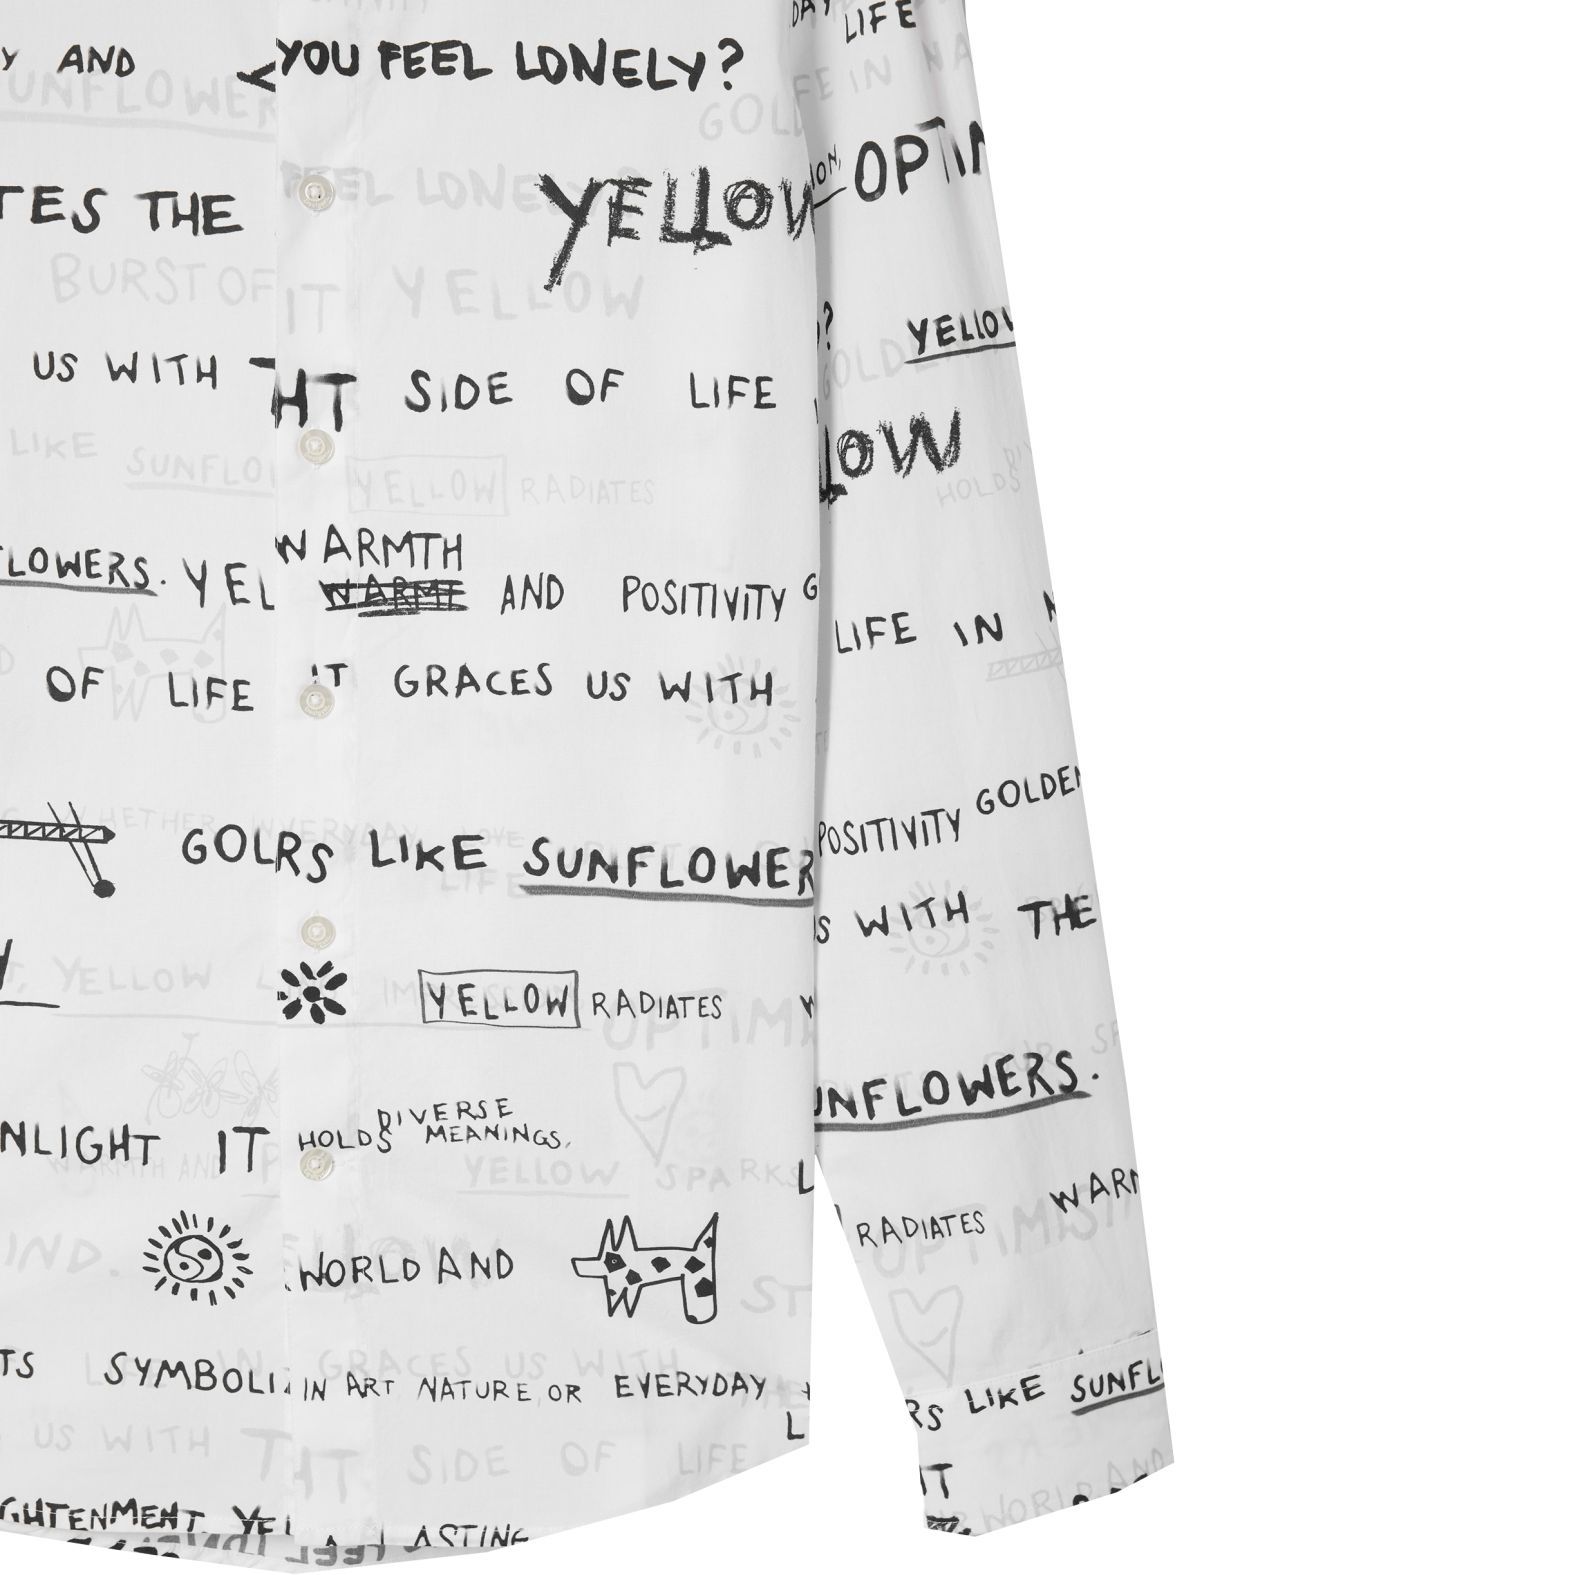 AND YOU FEEL LONELY?
LIFE
SUNFLOWER
LIFE IN
GOLD
FEEL LONELY?
YELLOW
OPTIM
TES THE
BURST OF IT YELLOW
YELLOW
US WITH
HT SIDE OF LIFE
GOLD
LOW
LIKE SUNFLO
YELLOW RADIATES
HOLDS
WARMTH
FLOWERS. YEL WARME AND POSITIVITY
LIFE IN
OF LIFE IT GRACES US WITH
POSITIVITY GOLDEN
WHETHER EVERYDAY LOVE
GOLRS LIKE SUNFLOWER
LIFE
US WITH THE
YELLOW
YELLOW RADIATES
OPTIM
OUR
UNFLOWERS.
DIVERSE
NLIGHT IT HOLDS MEANINGS.
WARMTH AND
YELLOW SPARKS
WARM
RADIATES
OPTIMIST
IND.
WORLD AND
ST
TS SYMBOLI IN ART NATURE, OR EVERYDAY
GRACES US WITH
RS LIKE SUNFL
US WITH T HT SIDE OF LIFE
IT
WORLD AND
GHTENMENT, YEL ASTING
FEEL LONELY